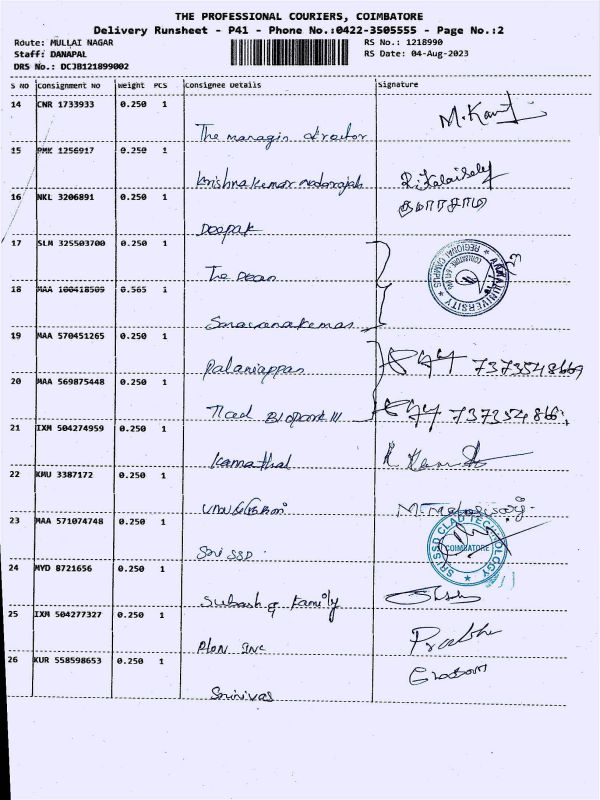 THE PROFESSIONAL COURIERS, COIMBATORE
Delivery Runsheet - P41 - Phone No.:0422-3505555 - Page No.:2
Route: MULLAI NAGAR RS No.: 1218990
Staff: DANAPAL RS Date: 04-Aug-2023
DRS No.: DCJB121899002
S NO Consignment No Weight PCS Consignee Details Signature
14 CNR 1733933 0.250 1
The managin director M.Kant
15 PMK 1256917 0.250 1
Krishnakumar nadarajah
16 NKL 3206891 0.250 1 குமாரசாமி
Deepak
17 SLM 325503700 0.250 1
The Dean
ANNA UNIVERSITY
REGIONAL CAMPUS
18 MAA 100418509 0.565 1
Saravanakumar
19 MAA 570451265 0.250 1
Palaniappan 7373548669
20 MAA 569875448 0.250 1
737354866
21 IXM 504274959 0.250 1
Kamathal
22 KMU 3387172 0.250 1
23 MAA 571074748 0.250 1
Sri SSD
SRI SSD CLAD TECHNOLOGY
COIMBATORE
24 MYD 8721656 0.250 1
Subash & family
25 IXM 504277327 0.250 1
Plon Inc Prabhu
26 KUR 558598653 0.250 1
Srinivas